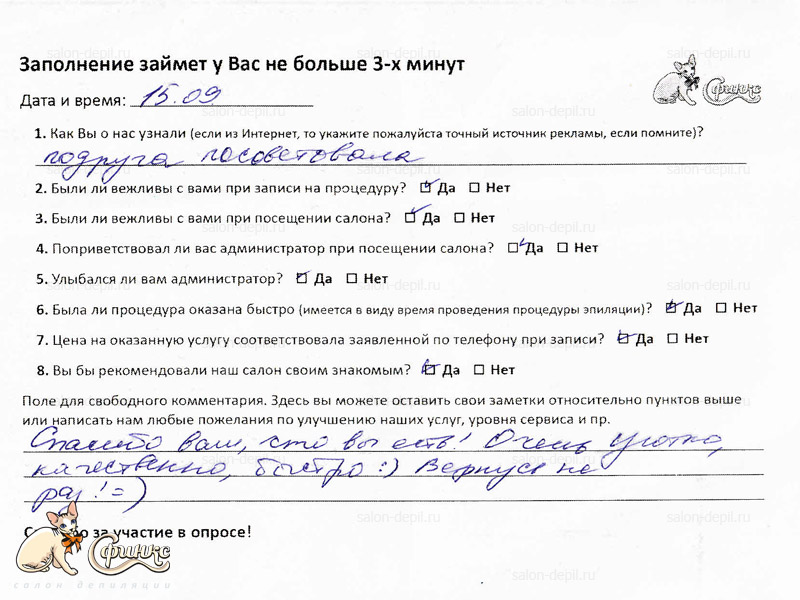 Заполнение займет у Вас не больше 3-х минут
Дата и время: 15.09
Сфинкс
1. Как Вы о нас узнали (если из Интернет, то укажите пожалуйста точный источник рекламы, если помните)?
подруга посоветовала
2. Были ли вежливы с вами при записи на процедуру? Да Нет
3. Были ли вежливы с вами при посещении салона? Да Нет
4. Поприветствовал ли вас администратор при посещении салона? Да Нет
5. Улыбался ли вам администратор? Да Нет
6. Была ли процедура оказана быстро (имеется в виду время проведения процедуры эпиляции)? Да Нет
7. Цена на оказанную услугу соответствовала заявленной по телефону при записи? Да Нет
8. Вы бы рекомендовали наш салон своим знакомым? Да Нет
Поле для свободного комментария. Здесь вы можете оставить свои заметки относительно пунктов выше
или написать нам любые пожелания по улучшению наших услуг, уровня сервиса и пр.
Спасибо вам, что вы есть! Очень уютно,
качественно, быстро :) Вернусь не
раз! =)
за участие в опросе!
Сфинкс
салон депиляции
salon-depil.ru